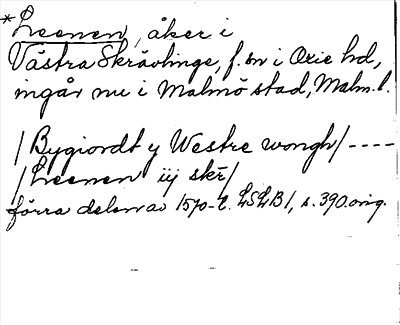 *Leenen, åker i
Västra Skrävlinge, f. sn i Oxie hd,
ingår nu i Malmö stad, Malm. l.
/Bygiordt y Westre wongh/----
/Leenen iij skr/
förra delen av 1570-t. LSLB1, s. 390. orig.